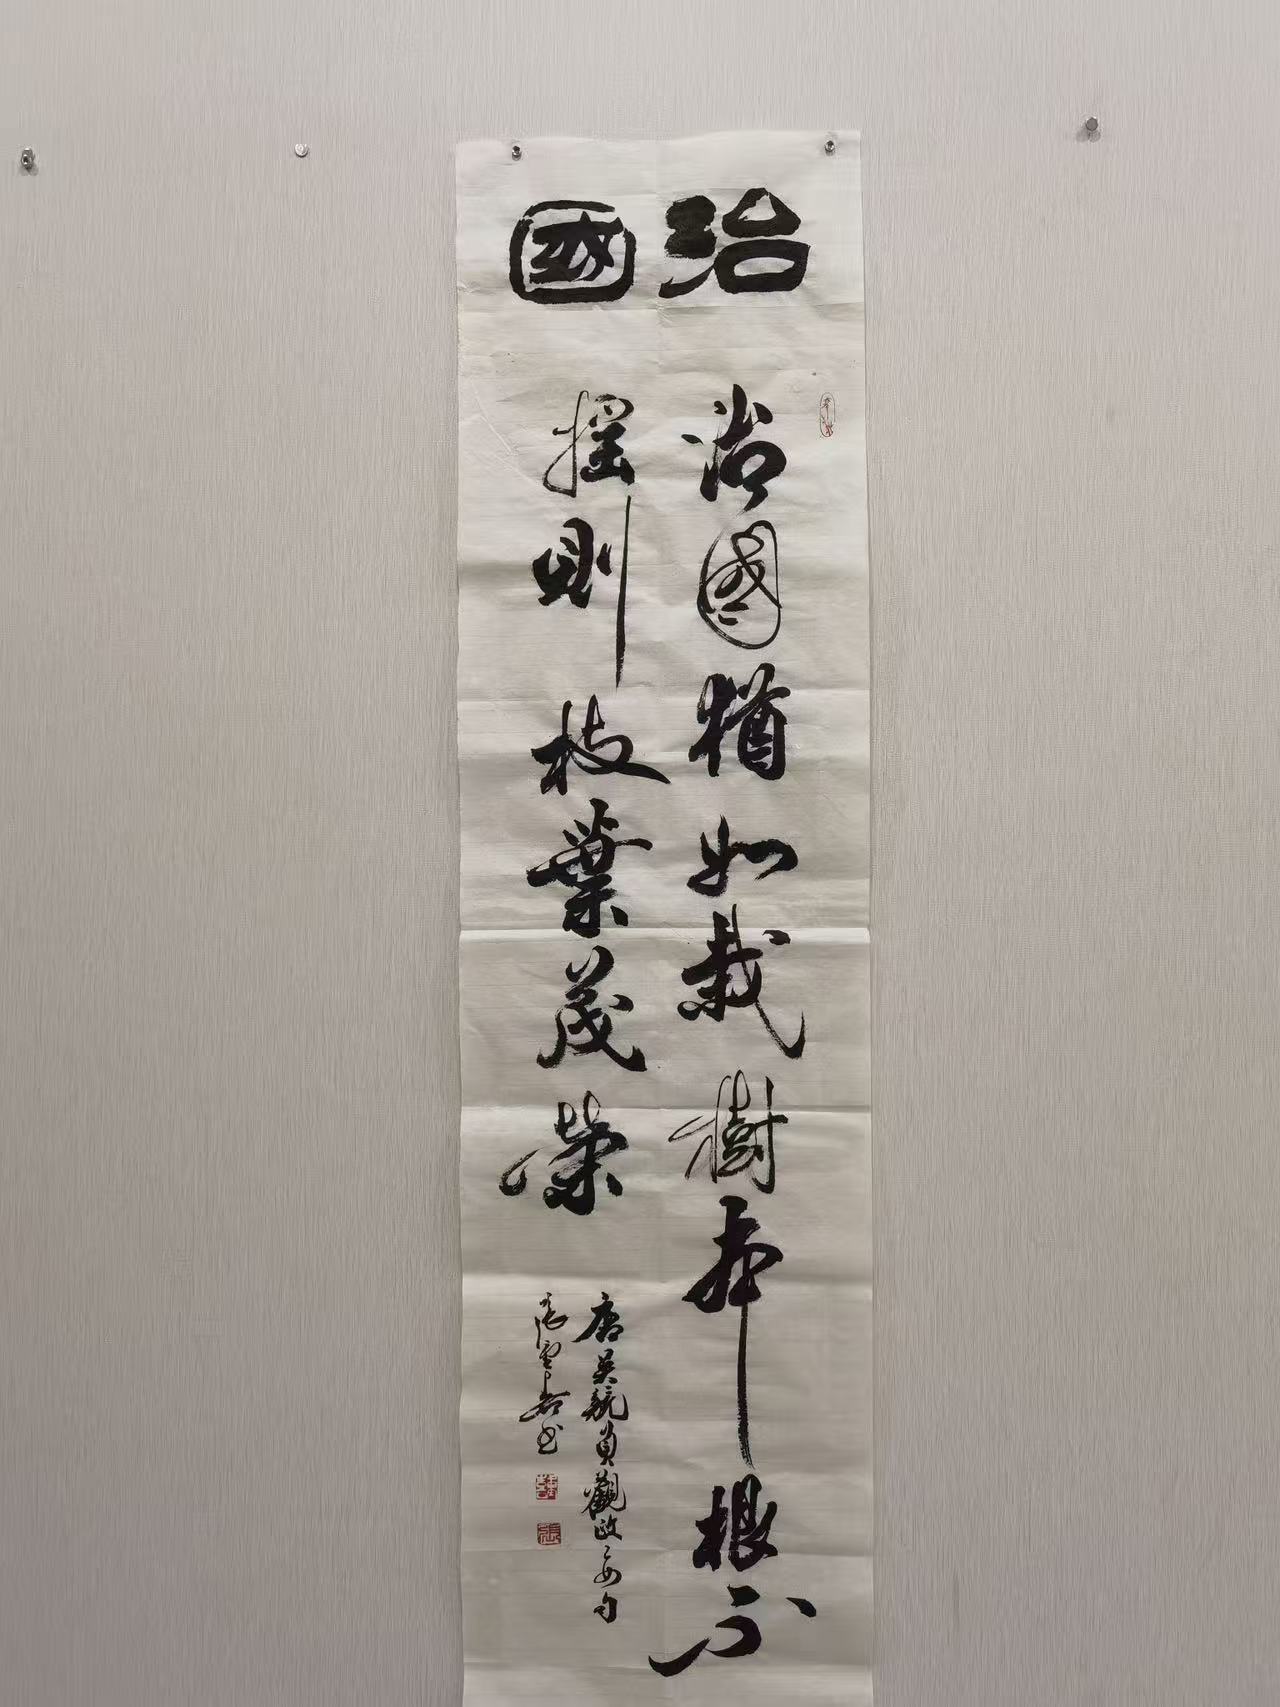 治國
治國猶如栽樹本根不
搖則枝葉茂榮
唐吳兢貞觀政要句
張雲書